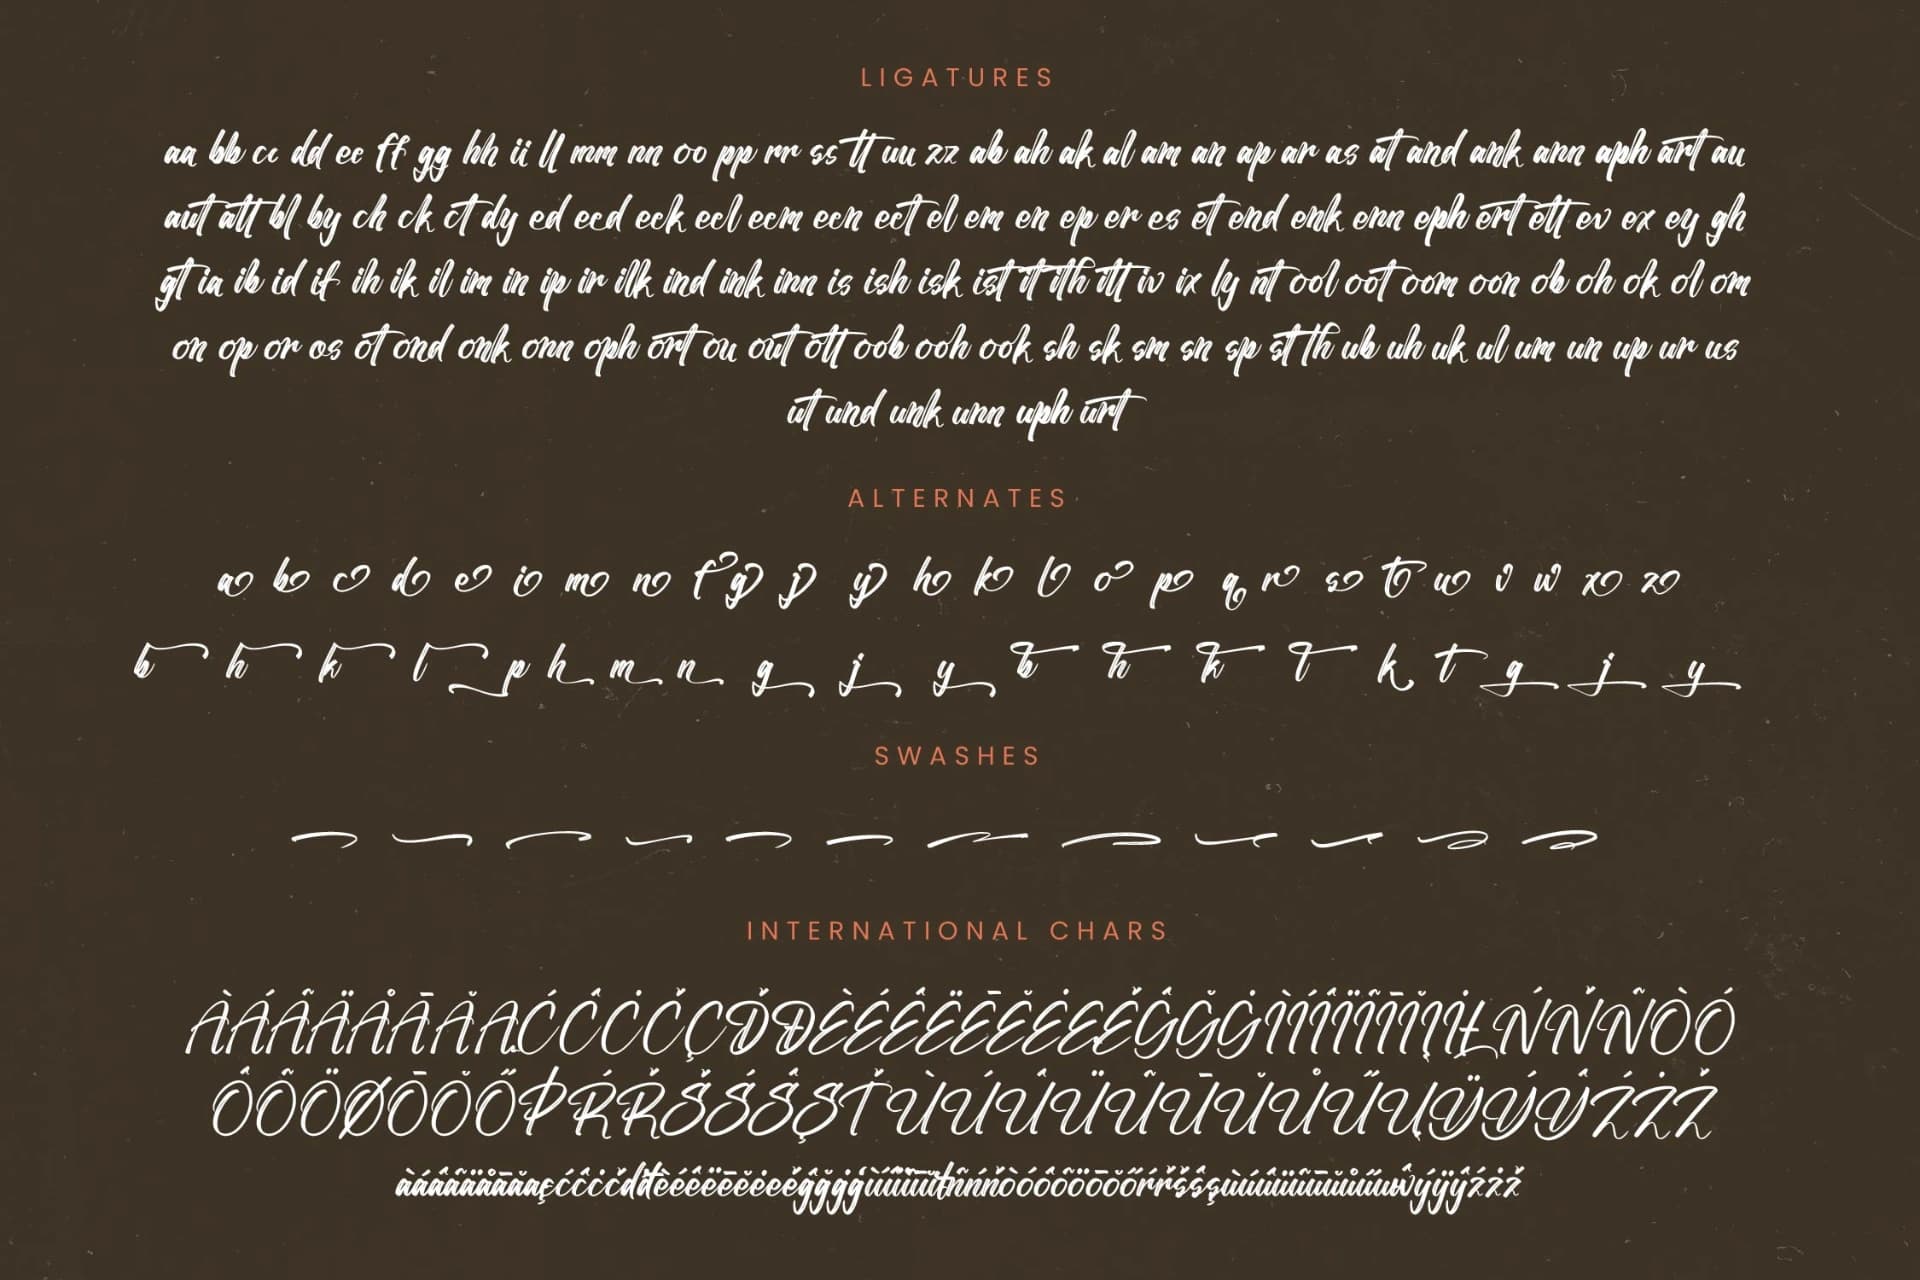 LIGATURES
aa bb cc dd ee ff gg hh ii ll mm nn oo pp rr ss tt uu zz ab ah ak al am an ap ar as at and ank ann aph art au
aut att bl by ch ck ct dy ed eed eck eel eem een eet el em en ep er es et end enk enn eph ert ett ev ex ey gh
gt ia ib id if ih ik il im in ip ir ilk ind ink inn is ish isk ist it ith itt iv ix ly nt ool oot oom oon ob oh ok ol om
on op or os ot ond onk onn oph ort ou out ott oob ooh ook sh sk sm sn sp st th ub uh uk ul um un up ur us
ut und unk unn uph urt
ALTERNATES
a b c d e i m n f g j y h k l o p q r s t u v w x z
b h k l p h m n g j y b h k l k t g j y
SWASHES
INTERNATIONAL CHARS
ÀÁÂÃÄÅĀĂĄĆĈĊČÇĎĐÈÉÊËĒĔĖĘĚĜĞĠÌÍÎÏĨĪĬĮİŁŃŇÑÒÓ
ÔÕÖØŌŎŐÞŔŘŠŚŜŞŤÙÚÛÜŨŪŬŮŰŲŸÝŶŹŻŽ